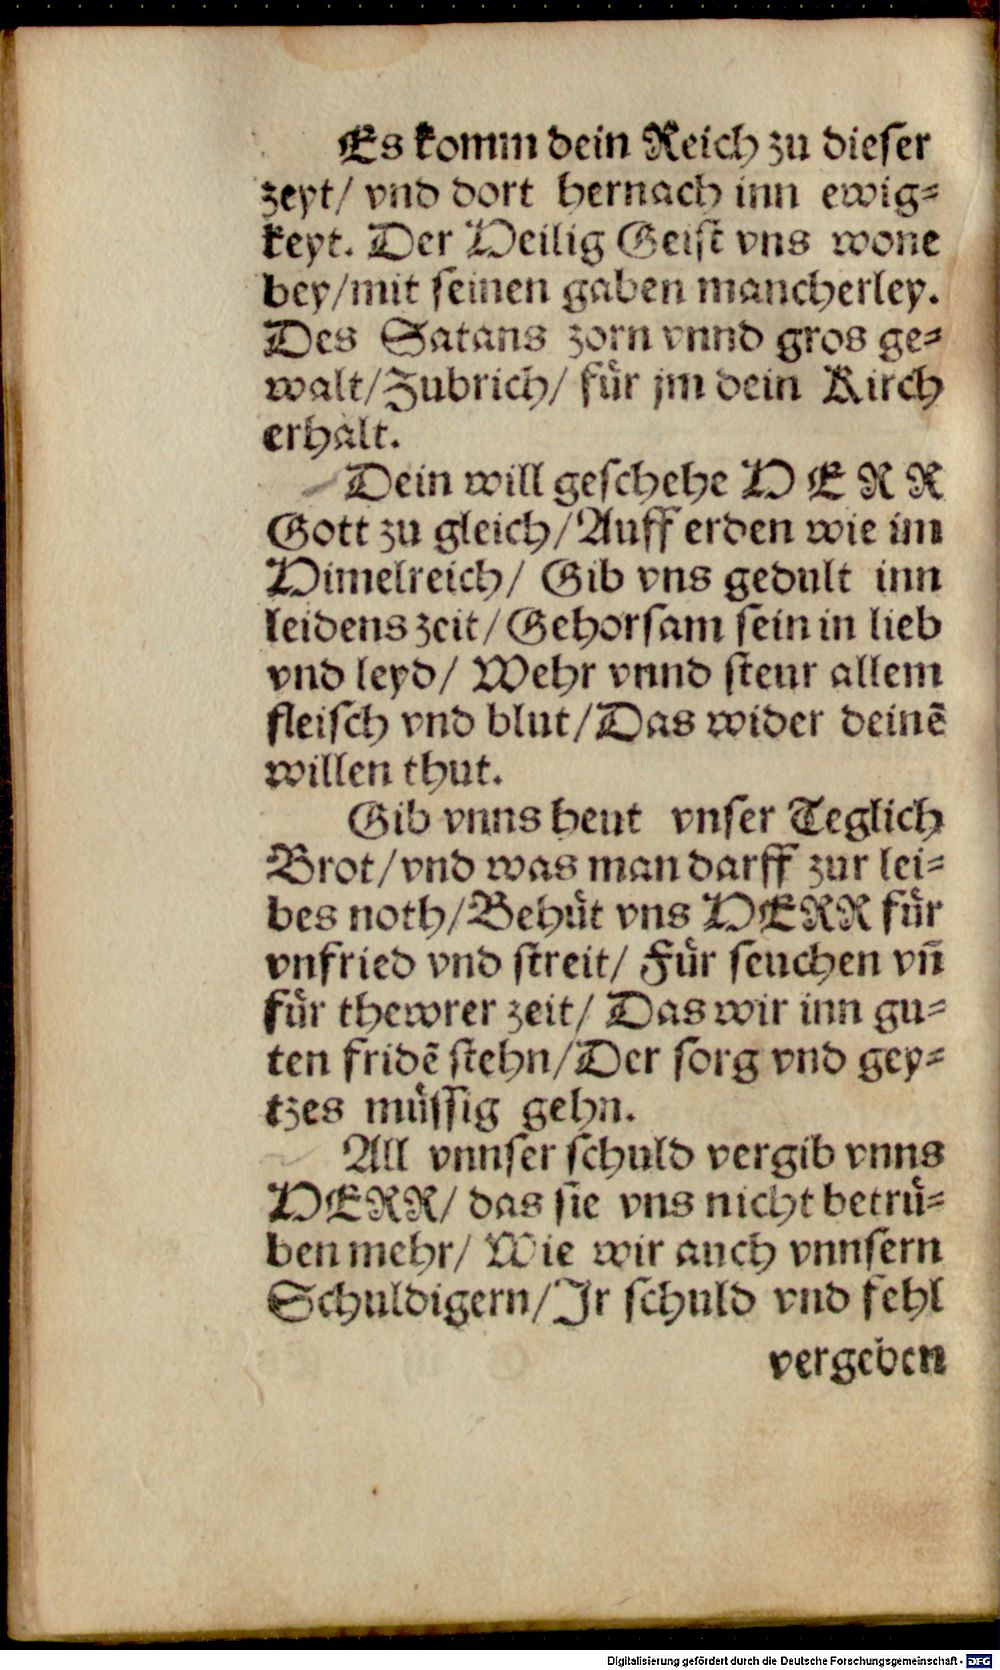 Es komm dein Reich zu dieser
zeyt/ vnd dort hernach inn ewig⸗
keyt. Der Heilig Geist vns wone
bey/mit seinen gaben mancherley.
Des Satans zorn vnnd gros ge⸗
walt/Zubrich/ für jm dein Kirch
erhalt.
Dein will geschehe H E R R
Gott zu gleich/Auff erden wie im
Himelreich/ Gib vns gedult inn
leidens zeit/Gehorsam sein in lieb
vnd leyd/ Wehr vnnd steur allem
fleisch vnd blut/Das wider deinẽ
willen thut.
Gib vnns heut vnser Teglich
Brot/vnd was man darff zur lei⸗
bes noth/Behüt vns HERR für
vnfried vnd streit/ Für seuchen vñ
für thewrer zeit/ Das wir inn gu⸗
ten fridẽ stehn/Der sorg vnd gey⸗
tzes müssig gehn.
All vnnser schuld vergib vnns
HERR/ das sie vns nicht betrü⸗
ben mehr/ Wie wir auch vnnsern
Schuldigern/Jr schuld vnd fehl
vergeben
Digitalisierung gefördert durch die Deutsche Forschungsgemeinschaft - DFG